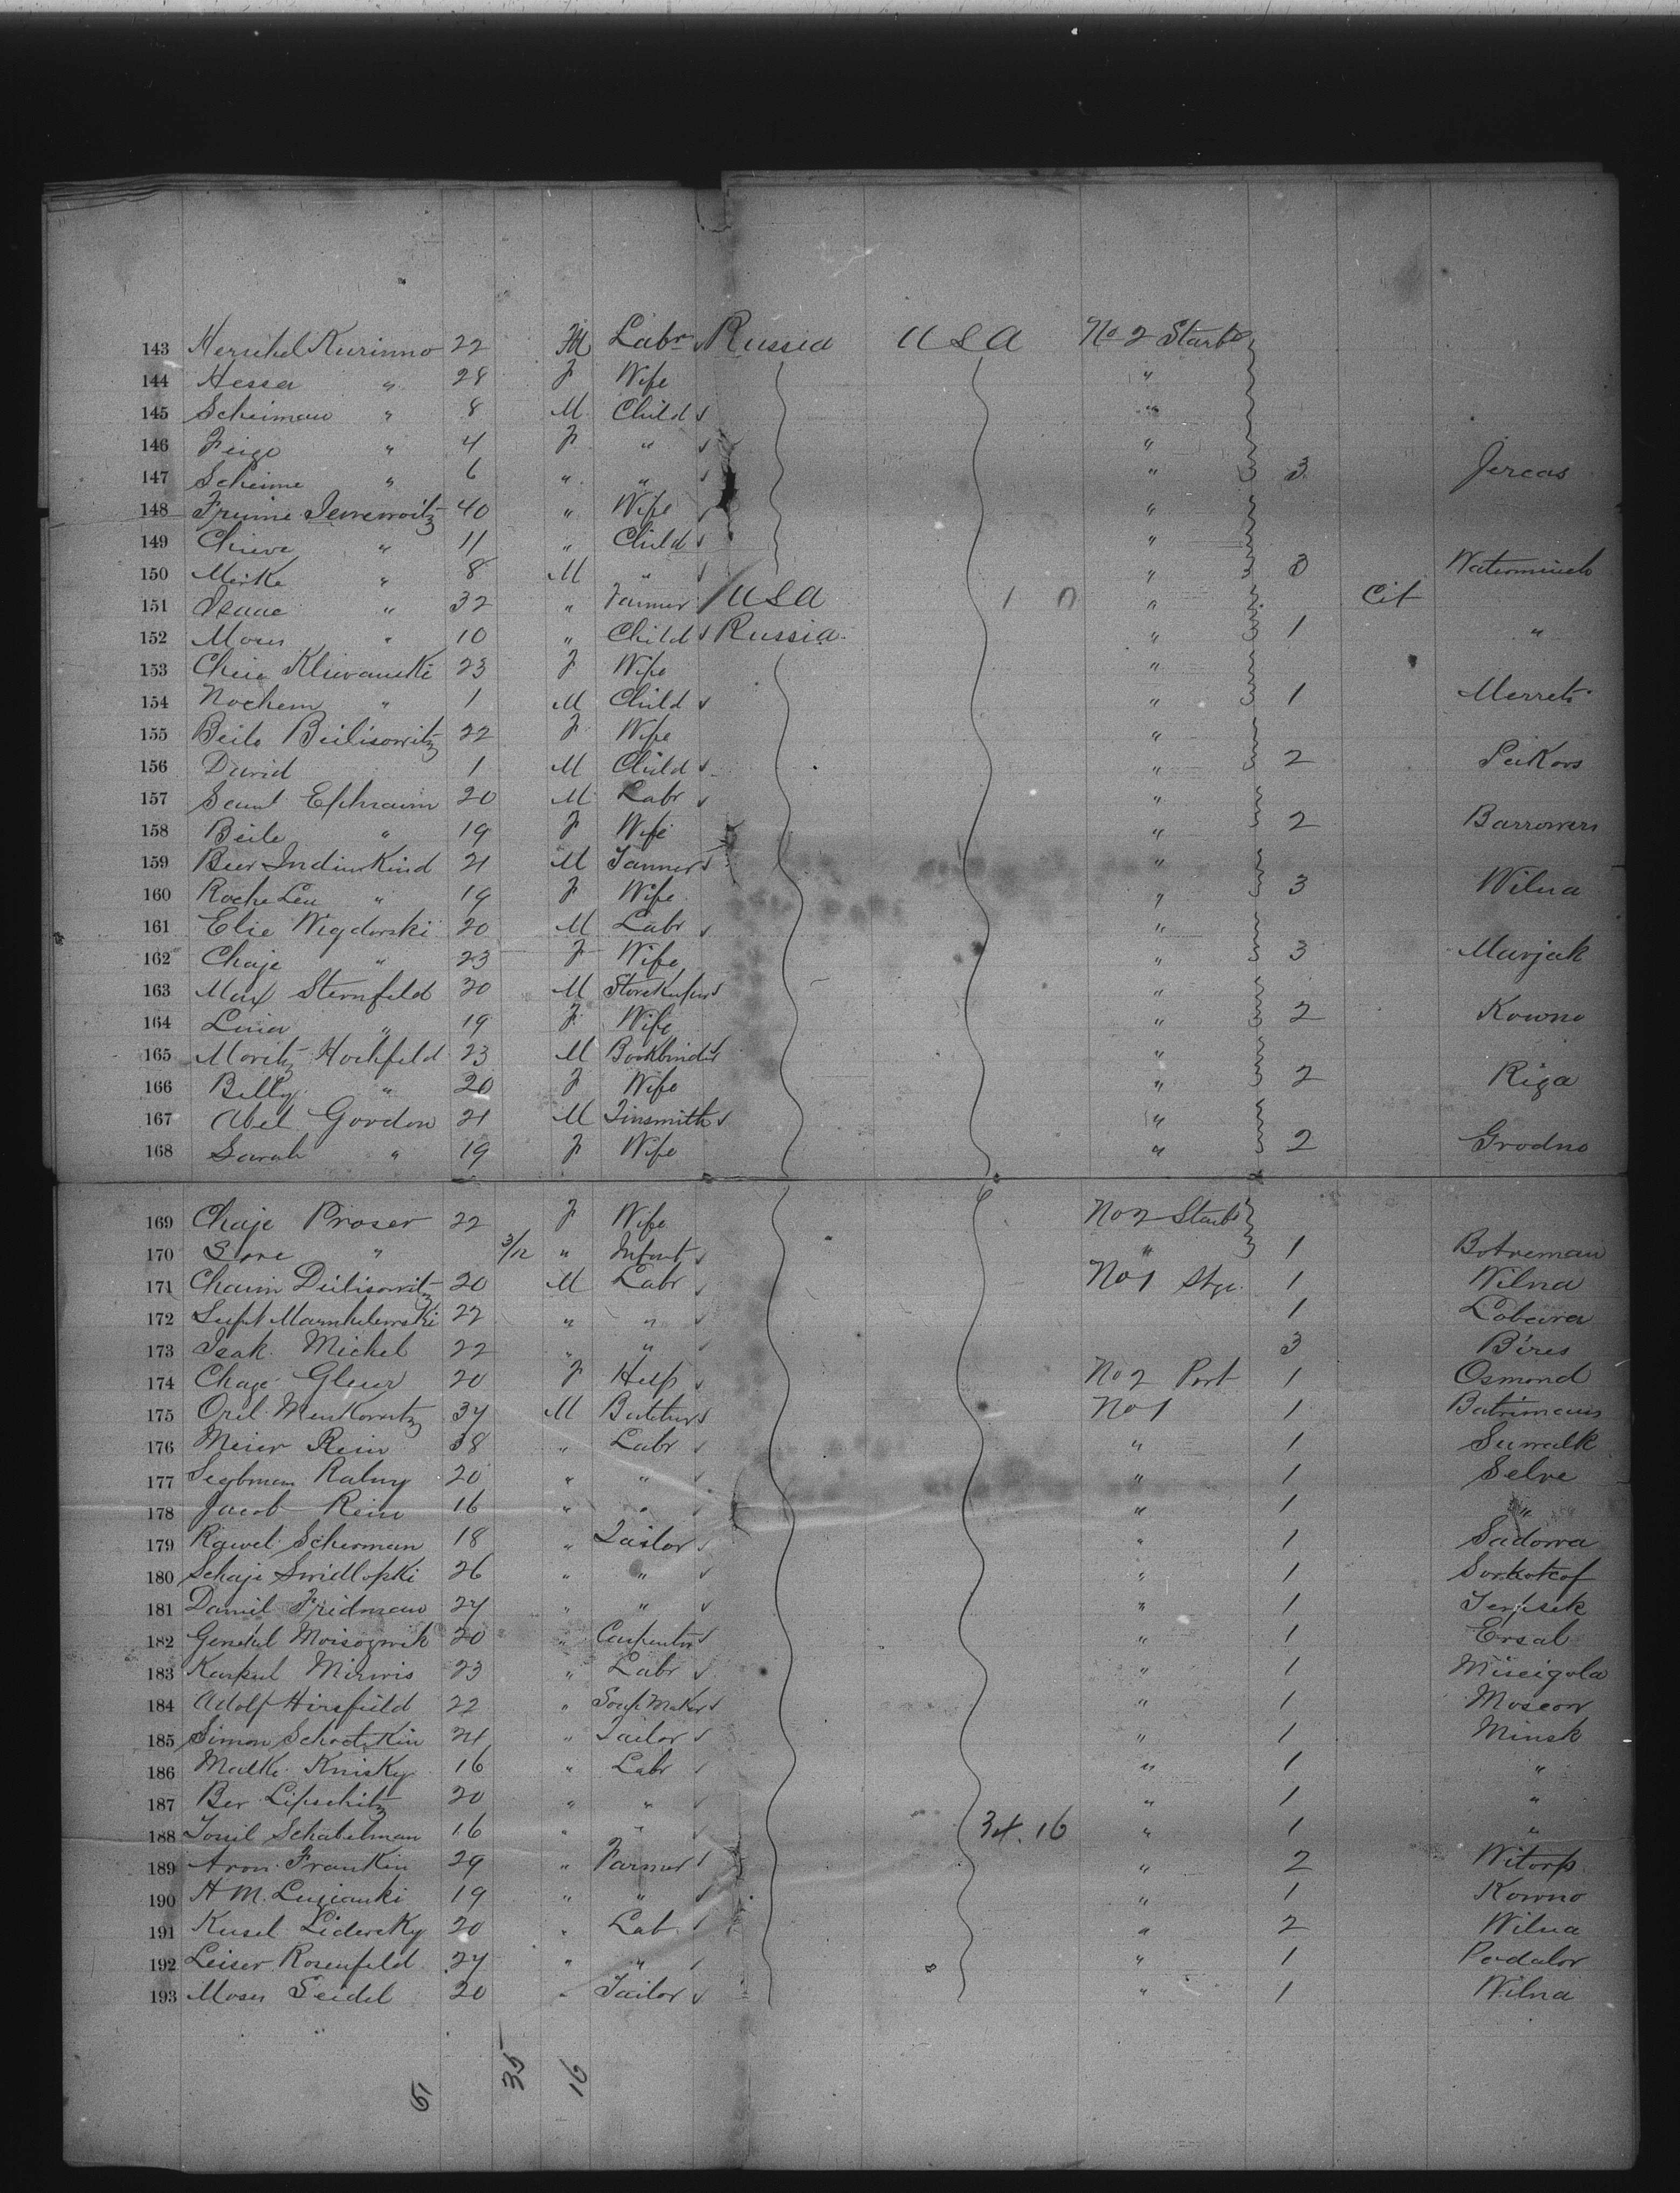 143 Herschel Kurinno 22 M Labr Russia USA No 2 Starb
144 Hessa " 28 F Wife "
145 Scheiman " 8 M Child "
146 Feige " 4 F " "
147 Scheime " 6 " " " 3 Jercas
148 Frume 40 " Wife "
149 " 11 " Child "
150 Merke " 8 M " " 3
151 Isaac " 32 " Farmer USA 1 " Cit
152 Moses " 10 " Child Russia " 1 "
153 Chaie Kliwanski 23 F Wife "
154 Nochem " 1 M Child " 1 Merretz
155 Beile Beilisowitz 22 F Wife "
156 David 1 M Child " 2
157 Saml Ephraim 20 M Labr "
158 Beile " 19 F Wife " 2 Barrowers
159 Beer Indiwkind 21 M Tanner "
160 Roche Lea " 19 F Wife " 3 Wilna
161 Elie Wigdorski 20 M Labr "
162 Chaje " 23 F Wife " 3 Marjak
163 Max Sternfeld 20 M Storekeeper "
164 Lina " 19 F Wife " 2 Kowno
165 Moritz Hochfeld 23 M Bookbinder "
166 Billy " 20 F Wife " 2 Riga
167 Abel Gordon 21 M Tinsmith "
168 Sarah " 19 F Wife " 2 Grodno
169 Chaje Proser 22 F Wife No 2 Starb
170 Sore " 3/12 " Infant " 1 Botreman
171 Chaim Deilisowitz 20 M Labr No 1 Stge 1 Wilna
172 22 " " 1
173 Isak Michel 22 " " 3 Bires
174 Chaje 20 F Help No 2 Port 1 Osmond
175 Menkowitz 34 M Butcher No 1 1 Batrimaus
176 Meier Rein 38 " Labr " 1 Suwalk
177 20 " " " 1 Selve
178 Jacob Rein 16 " " " 1 "
179 Rawel Scherman 18 " Tailor " 1 Sadowa
180 Schaje 26 " " " 1
181 Daniel Fridman 24 " " " 1
182 20 " Carpenter " 1 Ersal
183 Mirwis 23 " Labr " 1
184 Adolf Hirsfield 22 " Soap Maker " 1 Moscow
185 Simon Schootkin 24 " Tailor " 1 Minsk
186 Malke Knisky 16 " Labr " 1 "
187 Ber Lipschitz 20 " " " 1 "
188 Schabelman 16 " " 34.16 " 1 "
189 Aron Frankin 29 " Farmer " 2
190 H M. 19 " " " 1 Kowno
191 Kusel Lidersky 20 " Lab " 2 Wilna
192 Leiser Rosenfeld 24 " " " 1 Podalor
193 Moses Seidel 20 " Tailor " 1 Wilna
61 35 16